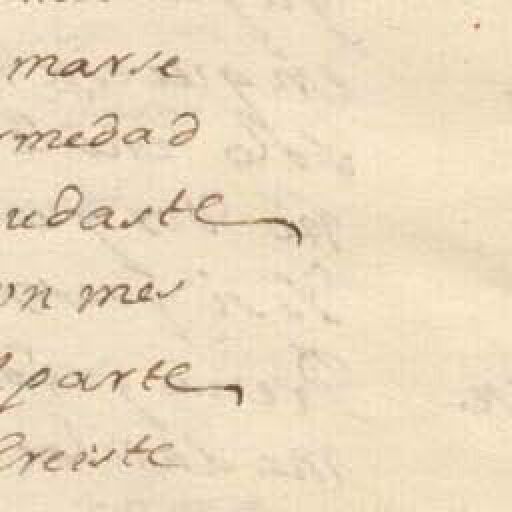 marse
rmedad
udaste
on mes
parte
creiste